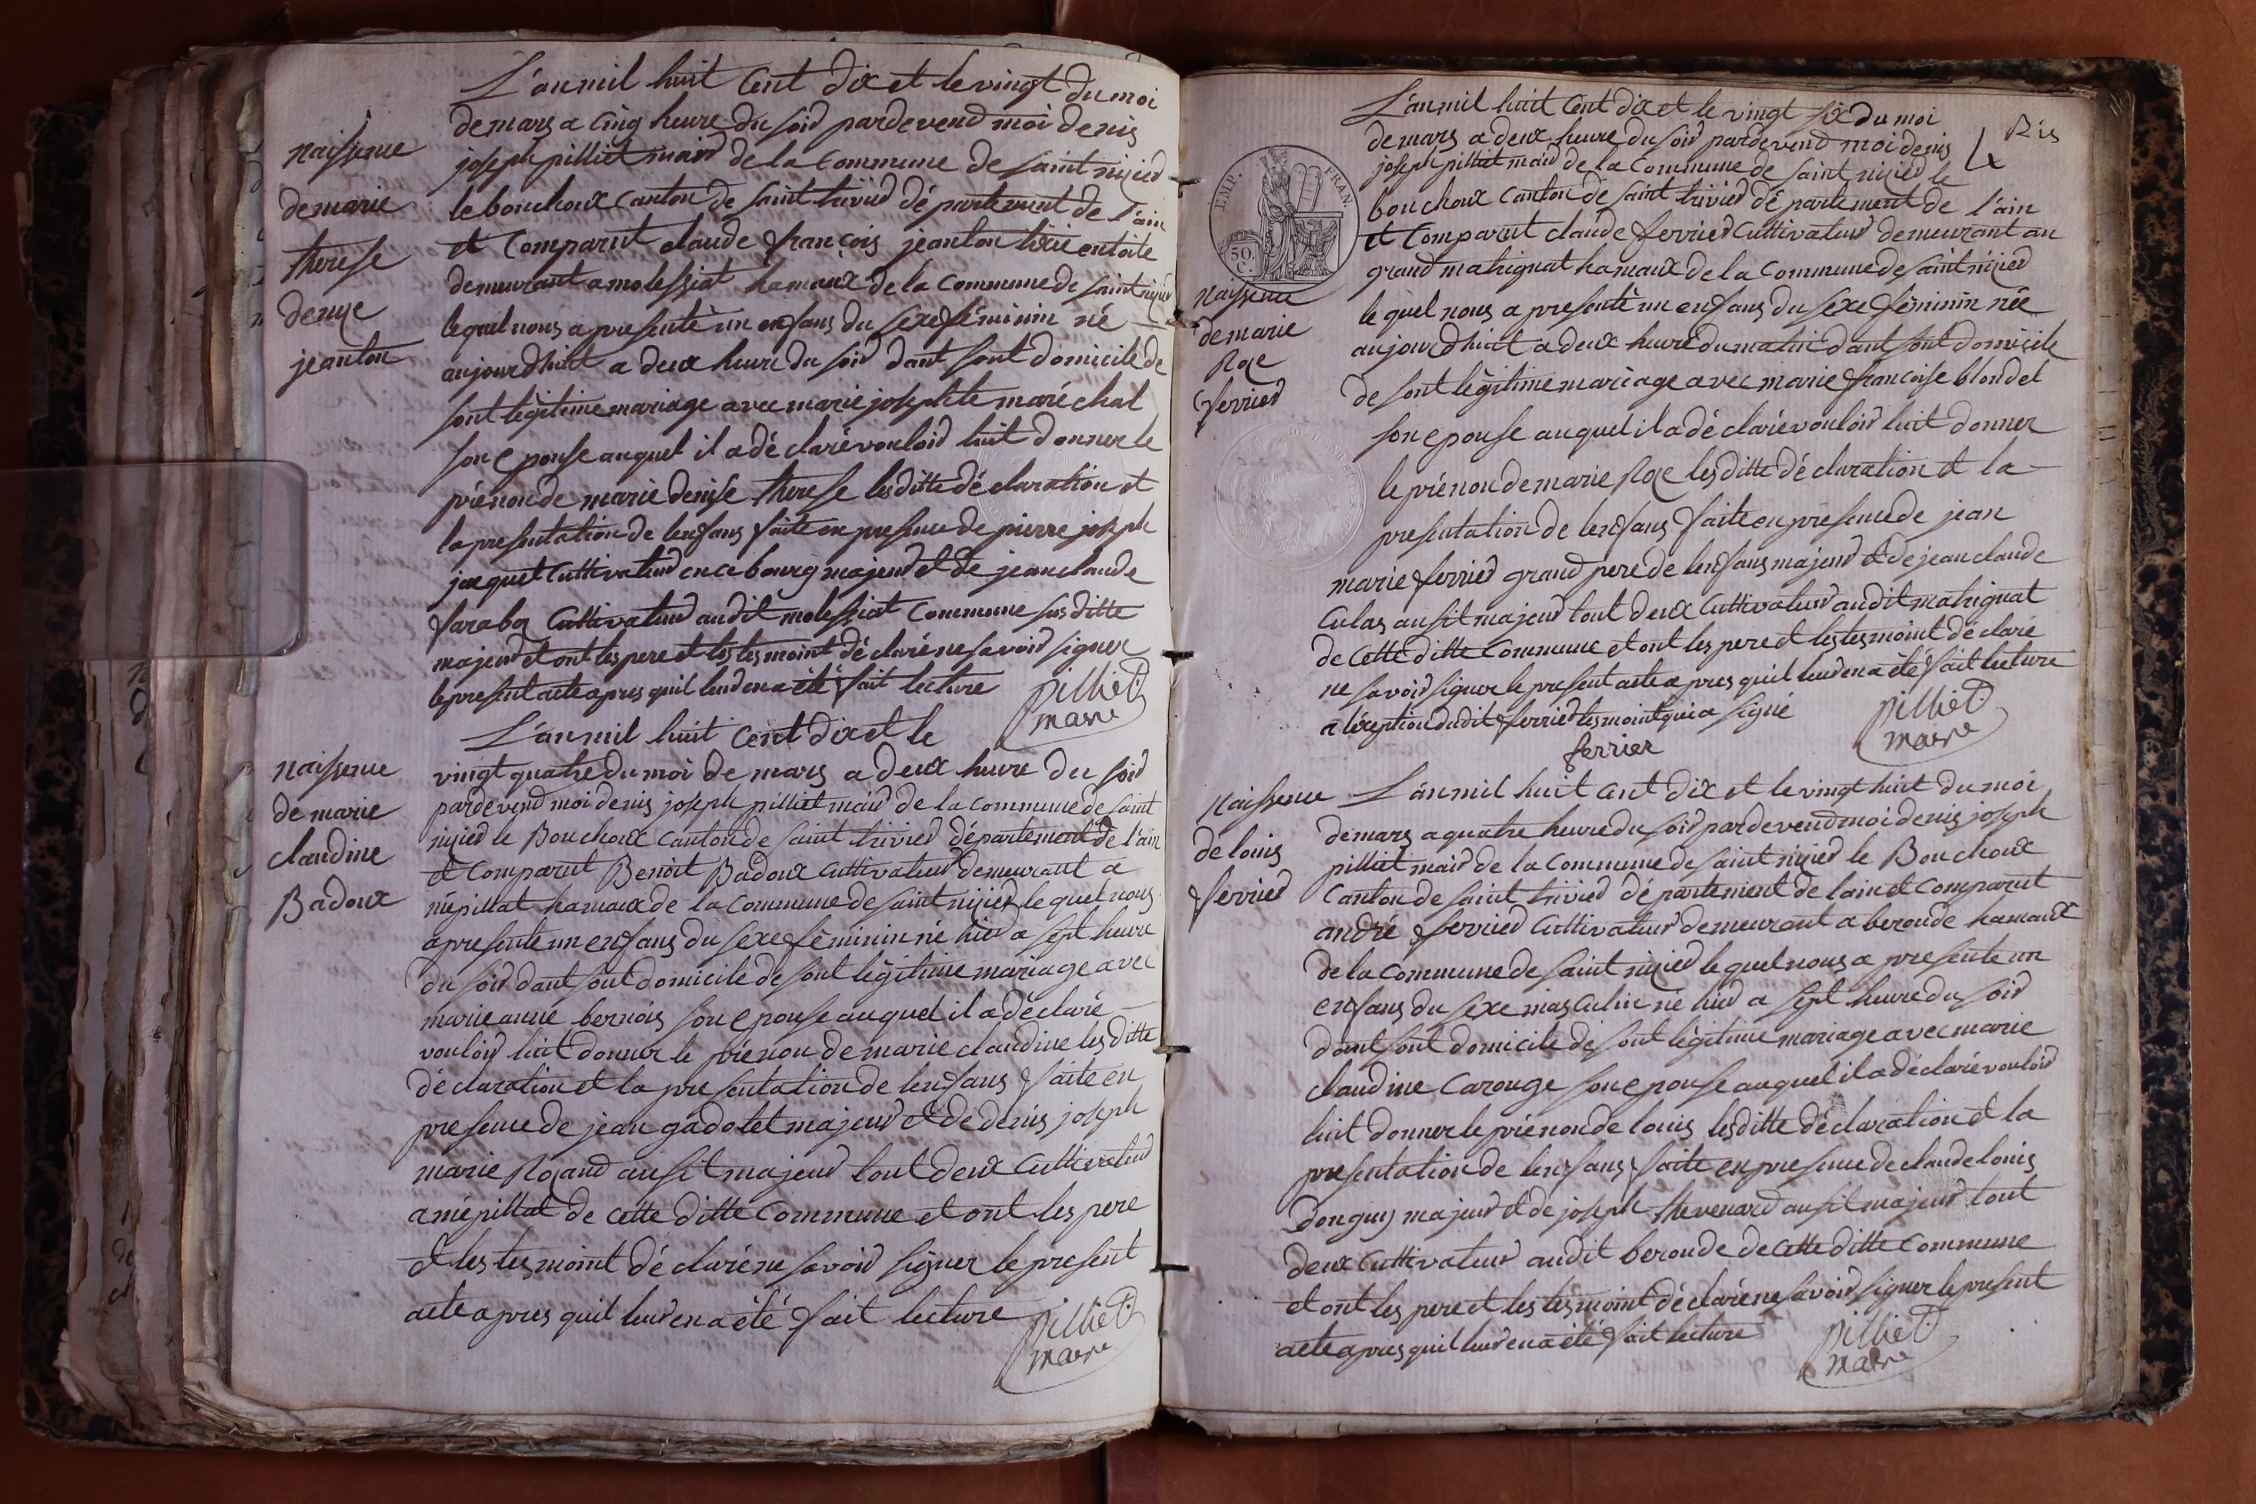 L'an mil huit Cent dix et le vingt du moi
de mars a Cinq heure du soir pardevend moi denis
joseph pilliet mair de la Commune de saint nizier
le bouchoux Canton de saint trivier département de l'ain
et Comparut claude françois jeanton
demeurant a molessiat hamaux de la Commune de saint nizier
lequel nous a presenté un enfans du sexe féminin né
aujourdhuit a deux heure du soir dant sont domicile de
sont légitime mariage avec marie josephte maréchal
son epouse auquel il a déclaré vouloir luit donner le
prénon de marie denise therese lesditte déclaration et
la presentation de lenfans faite en presence de pierre joseph
jacquet Cultivateur en ce bourg majeur et de jean claude
faraboz Cultivateur audit molessiat Commune susditte
majeur et ont les pere et les tesmoint déclaré ne savoir signer
le present acte apres quil leur en a été fait lecture
pilliet
maire
naissence
de marie
therese
denise
jeanton
L'an mil huit Cent dix et le
vingt quatre du moi de mars a deux heure du soir
pardevend moi denis joseph pilliet mair de la Commune de saint
nizier le Bouchoux Canton de saint trivier département de l'ain
et Comparut Benoit Badoux Cultivateur demeurant a
mépillat hamaux de la Commune de saint nizier lequel nous
a presente un enfans du sexe féminin né hier a sept heure
du soir dant sont domicile de sont légitime mariage avec
marie anne bernois son epouse auquel il a déclaré
vouloir luit donner le prénon de marie claudine lesditte
déclaration et la presentation de lenfans faite en
presence de jean gadolet majeur et de denis joseph
marie Rozand ausit majeur tout deux Cultivateur
a mépillat de Cette ditte Commune et ont les pere
et les tesmoint déclaré ne savoir signer le present
acte apres quil leur en a été fait lecture
pilliet
maire
naissence
de marie
claudine
Badoux
Bis
IMP. FRAN.
50 C.
L'an mil huit Cent dix et le vingt six du moi
de mars a deux heure du soir pardevend moi denis
joseph pilliet mair de la Commune de saint nizier le
bouchoux Canton de saint trivier département de l'ain
et Comparut claude ferrier Cultivateur demeurant au
grand matrignat hamaux de la Commune de saint nizier
le quel nous a presenté un enfans du sexe féminin née
aujourdhuit a deux heure du matin dant sont domicile
de sont légitime mariage avec marie françoise blondel
son epouse auquel il a déclaré vouloir luit donner
le prénon de marie Roze lesditte déclaration et la
presentation de lenfans faite en présence de jean
marie ferrier grand pere de lenfans majeur et de jean claude
Culas ausit majeur tout deux Cultivateur audit matrignat
de Cette ditte Commune et ont les pere et les tesmoint déclaré
ne savoir signer le present acte apres quil leur en a été fait lecture
a léxeption dudit ferrier tesmoint qui a signé
ferrier
pilliet
maire
naissence
de marie
Roze
ferrier
L'an mil huit Cent dix et le vingt huit du moi
de mars a quatre heure du soir pardevend moi denis joseph
pilliet mair de la Commune de saint nizier le Bouchoux
Canton de saint trivier département de lain et Comparut
andré ferrier Cultivateur demeurant a beroude hamaux
de la Commune de saint nizier lequel nous a presente un
enfans du sexe masculin né hier a sept heure du soir
dant sont domicile de sont légitime mariage avec marie
claudine Carouge son epouse auquel il a déclaré vouloir
luit donner le prénon de louis lesditte déclaration et la
presentation de lenfans faite en presence de claude louis
donguy majeur et de joseph thevenard ausit majeur tout
deux Cultivateur audit beroude de Cette ditte Commune
et ont les pere et les tesmoint déclaré ne savoir signer le present
acte apres quil leur en a été fait lecture
pilliet
maire
naissence
de louis
ferrier